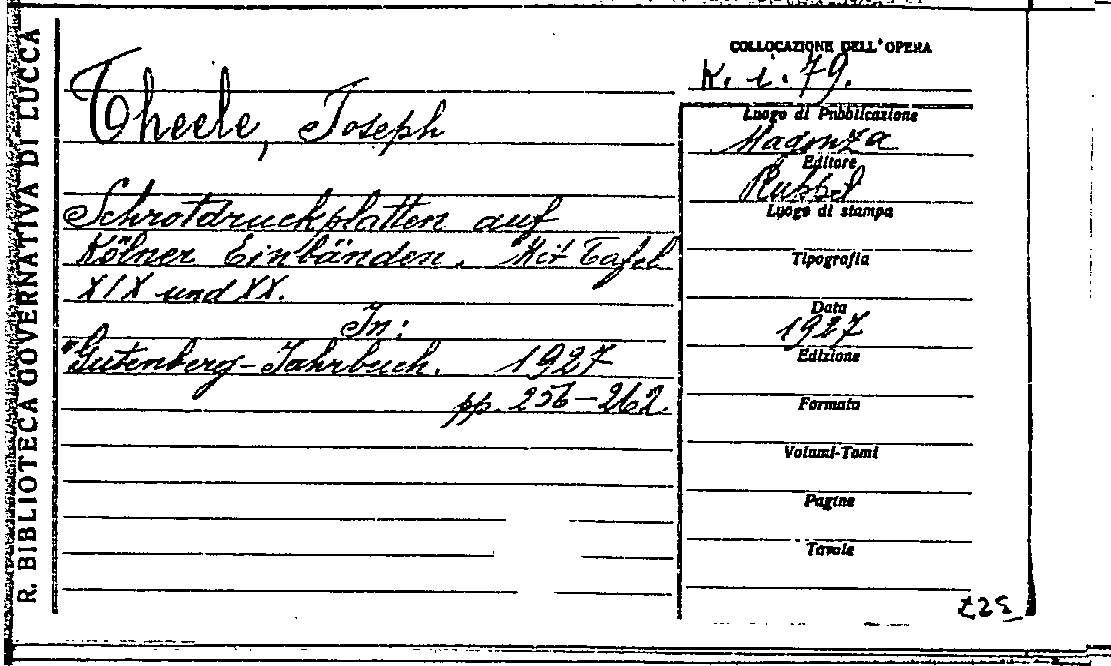 R. BIBLIOTECA GOVERNATIVA DI LUCCA
Theele, Joseph
Schrotdruckplatten auf
Kölner Einbänden. Mit Tafel
XIX und XX.
In:
"Gutenberg-Jahrbuch. 1927
pp. 256-262.
COLLOCAZIONE DELL'OPERA
K. i. 79.
Luogo di Pubblicazione
Magonza
Editore
Luogo di stampa
Tipografia
Data
1927
Edizione
Formato
Volumi-Tomi
Pagine
Tavole